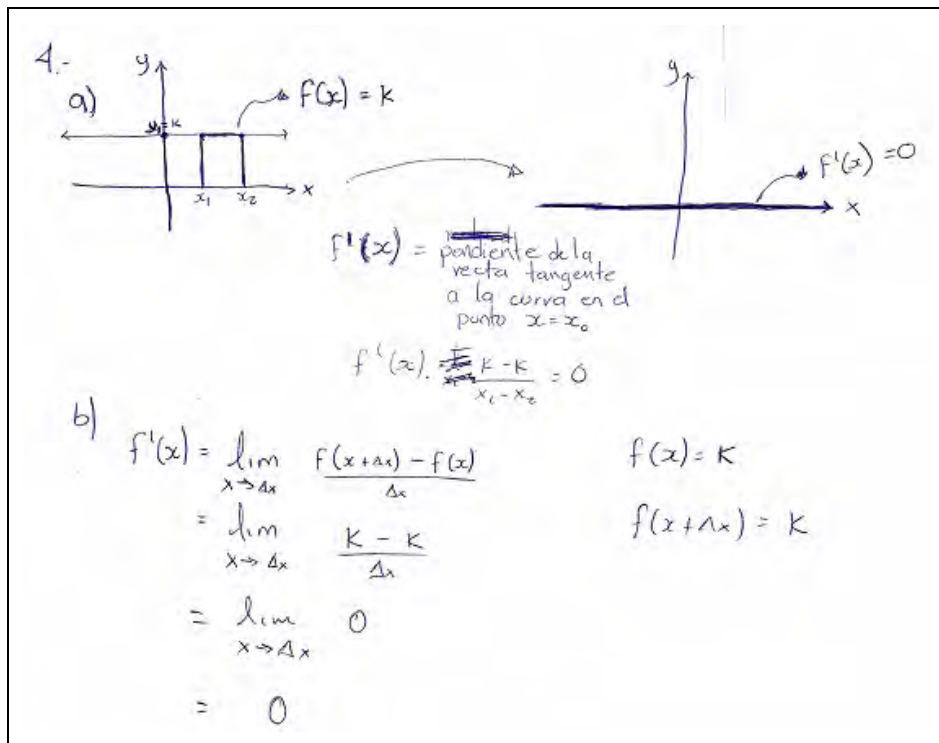 4.-
a)
y
f(x) = K
K
x₁ x₂ x
y
f'(x) = 0
x
f'(x) = pendiente de la
recta tangente
a la curva en el
punto x = x₀
f'(x) = K - K / x₁ - x₂ = 0
b)
f'(x) = lim x→Δx f(x+Δx) - f(x) / Δx
f(x) = K
= lim x→Δx K - K / Δx
f(x+Δx) = K
= lim x→Δx 0
= 0